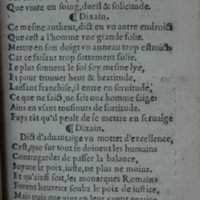 Que viure en soing, dueil & solicitude.
¶ Dixain.
Ce mesme autheur, dict en vn autre endroict
Que c'est a l'homme vne grande folie.
Mettre en son doigt vn anneau trop estroict
Car ce faisant trop sottement folie.
Le plus souuent le sol soy mesme lye,
Et pour trouuer heur & beatitude,
Laissant franchise, il entre en seruitude,
Ce que ne faict, ne soit ont homme saige
Ains en viuant tousiours de sortitude.
Fuys tât qu'il peult de se mettre en seruaige
¶ Dixain.
Dict d'aduantaige en mottet d'excellence,
C'est, que sur tout se doiuent les humains
Contregarder de passer la balance,
Suyure le poix, iuste, ne plus ne moins.
Et qu'ainsi soit, les monarques Romains
Furent heureux soubz le poix de iustice,
Mais puis que